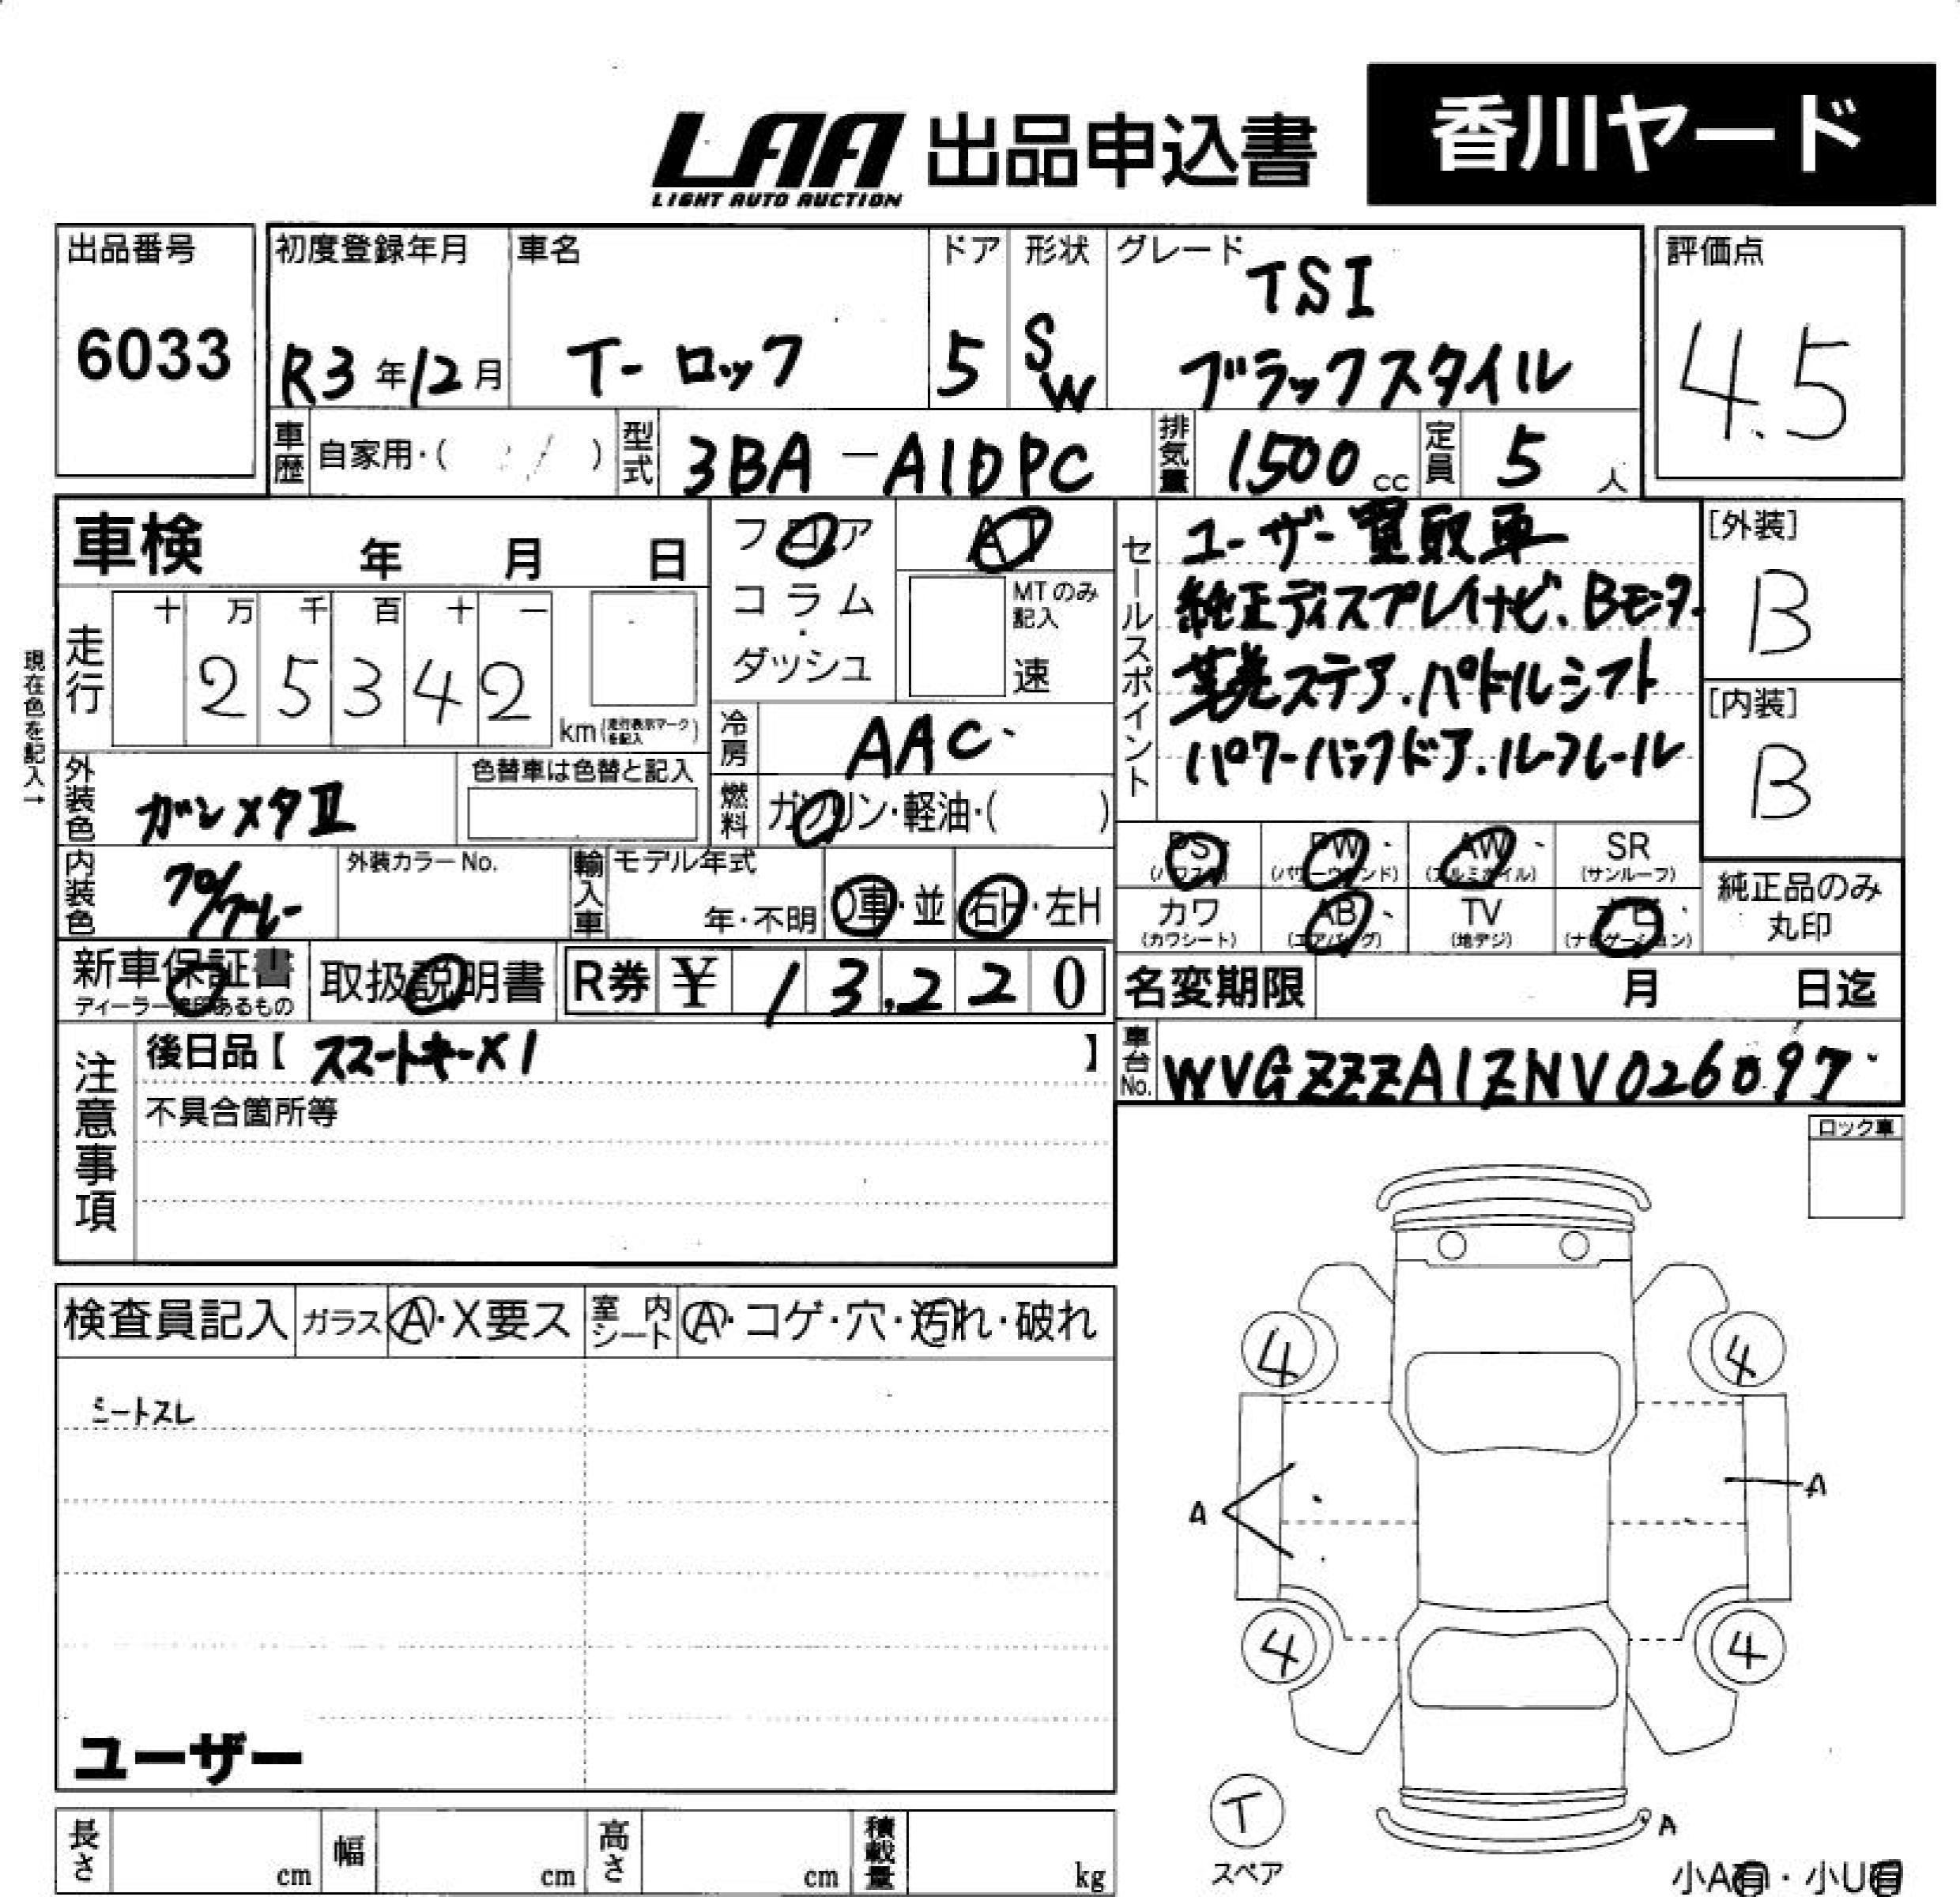 LAA 出品申込書 香川ヤード
LIGHT AUTO AUCTION
出品番号 初度登録年月 車名 ドア 形状 グレード 評価点
6033 R3年12月 T-ロック 5 SW TSI
ブラックスタイル 4.5
車歴 自家用・( ) 型式 3BA-A1DPC 排気量 1500cc 定員 5人
車検 年 月 日
フロア AT
コラム・ダッシュ MTのみ記入 速
現在色を記入→
走行 十 万 千 百 十 一
2 5 3 4 2
km(走行表示マークを記入)
セールスポイント
ユーザー買取車
純正ディスプレイナビ.Bモニター
革巻ステア.パドルシフト
パワーバックドア.ルーフレール
[外装]
B
[内装]
B
冷房 AAC
外装色 ガンメタII 色替車は色替と記入
燃料 ガソリン・軽油・( )
内装色 外装カラーNo.
輸入車 モデル年式 年・不明 D車・並 右H・左H
PS (パワステ) PW (パワーウインド) AW (アルミホイル) SR (サンルーフ)
カワ (カワシート) AB (エアバッグ) TV (地デジ) ナビ (ナビゲーション)
純正品のみ
丸印
新車保証書 取扱説明書 R券 ¥ 13,220
ディーラー捺印あるもの
名変期限 月 日迄
車台No. WVGZZZA1ZNV026097
注意事項
後日品【 スマートキーX1 】
不具合箇所等
ロック車
検査員記入 ガラス A・X要ス 室内シート A・コゲ・穴・汚れ・破れ
シートスレ
4 4
A A
4 4
ユーザー
T
スペア
A
長さ cm 幅 cm 高さ cm 積載量 kg
小A有・小U有